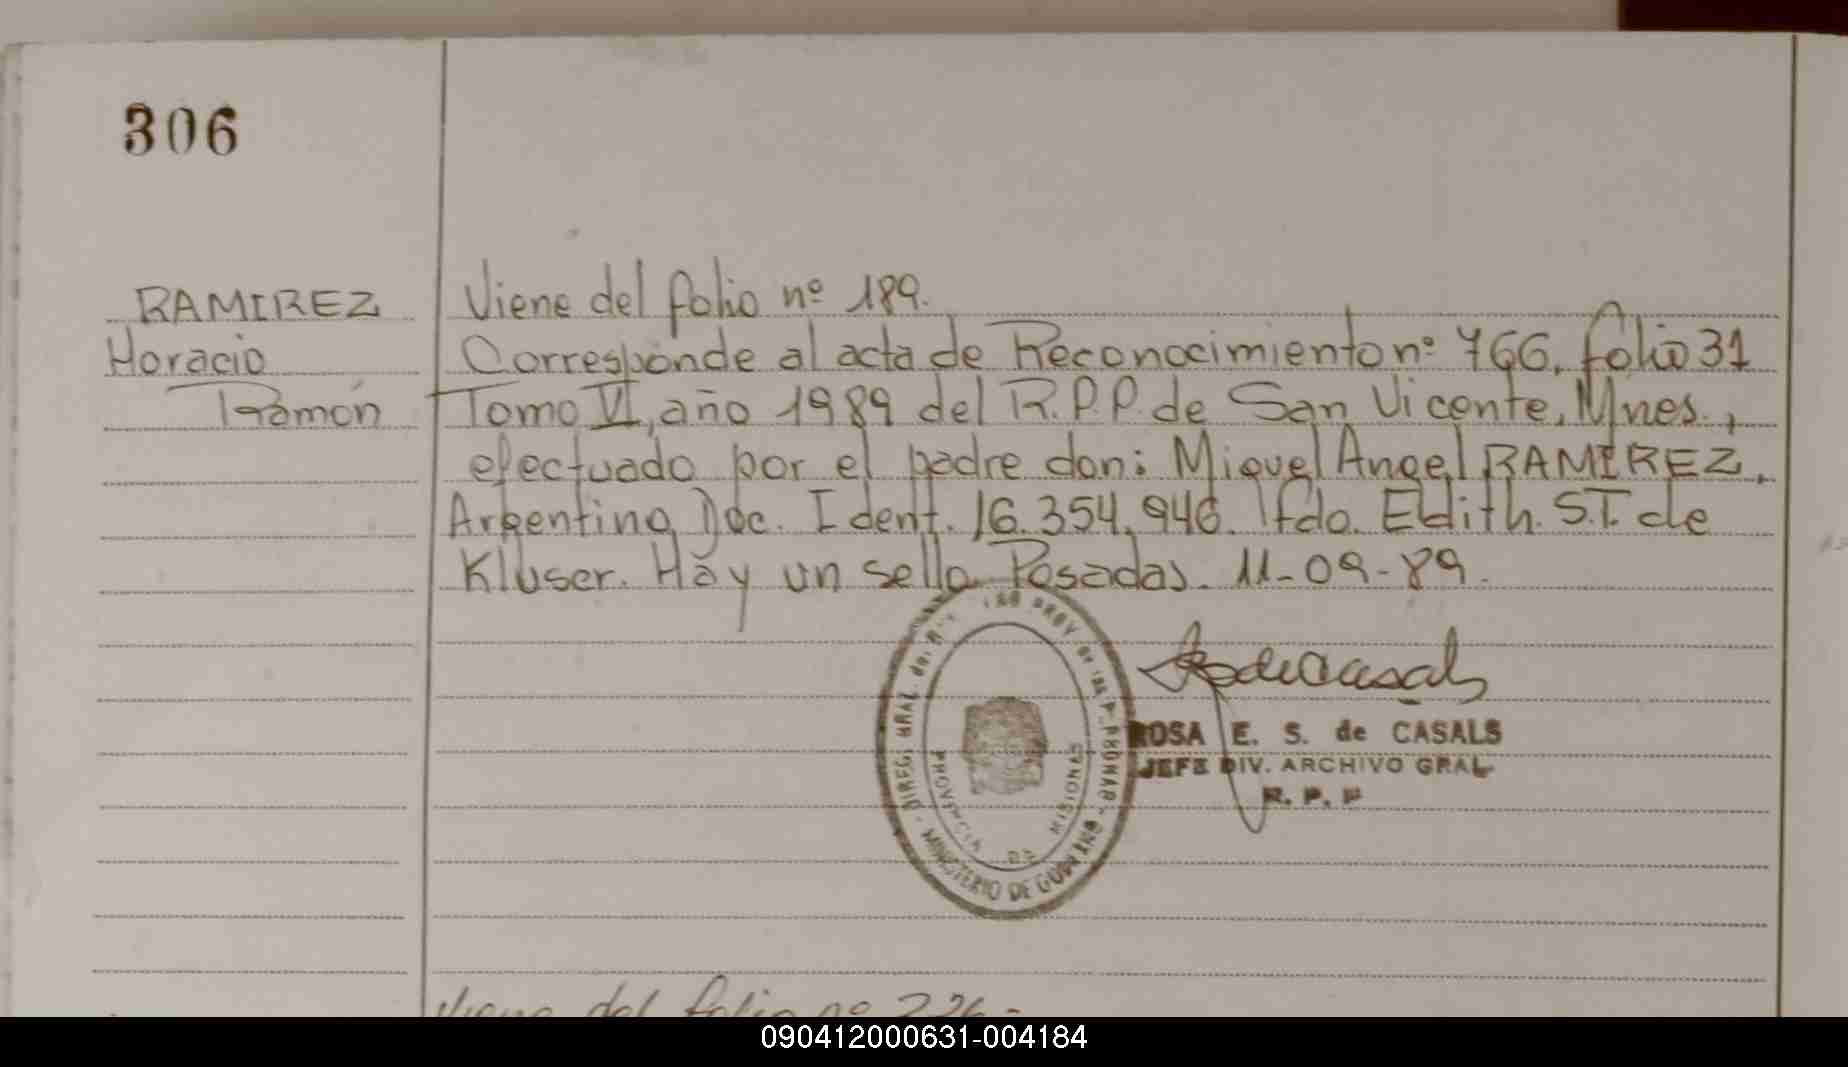 306
RAMIREZ
Horacio
Ramón
Viene del folio nº 189.
Corresponde al acta de Reconocimiento nº 766, folio 31
Tomo VI, año 1989 del R.P.P. de San Vicente, Mnes.,
efectuado por el padre don: Miguel Angel RAMIREZ,
Argentino, Doc. Ident. 16.354.946. Fdo. Edith. S.T. de
Kluser. Hay un sello Posadas. 11-09-89.
PROVINCIA DE MISIONES
MINISTERIO DE GOBIERNO
ROSA E. S. de CASALS
JEFE DIV. ARCHIVO GRAL
R. P. P
Viene del folio nº 226.-
090412000631-004184